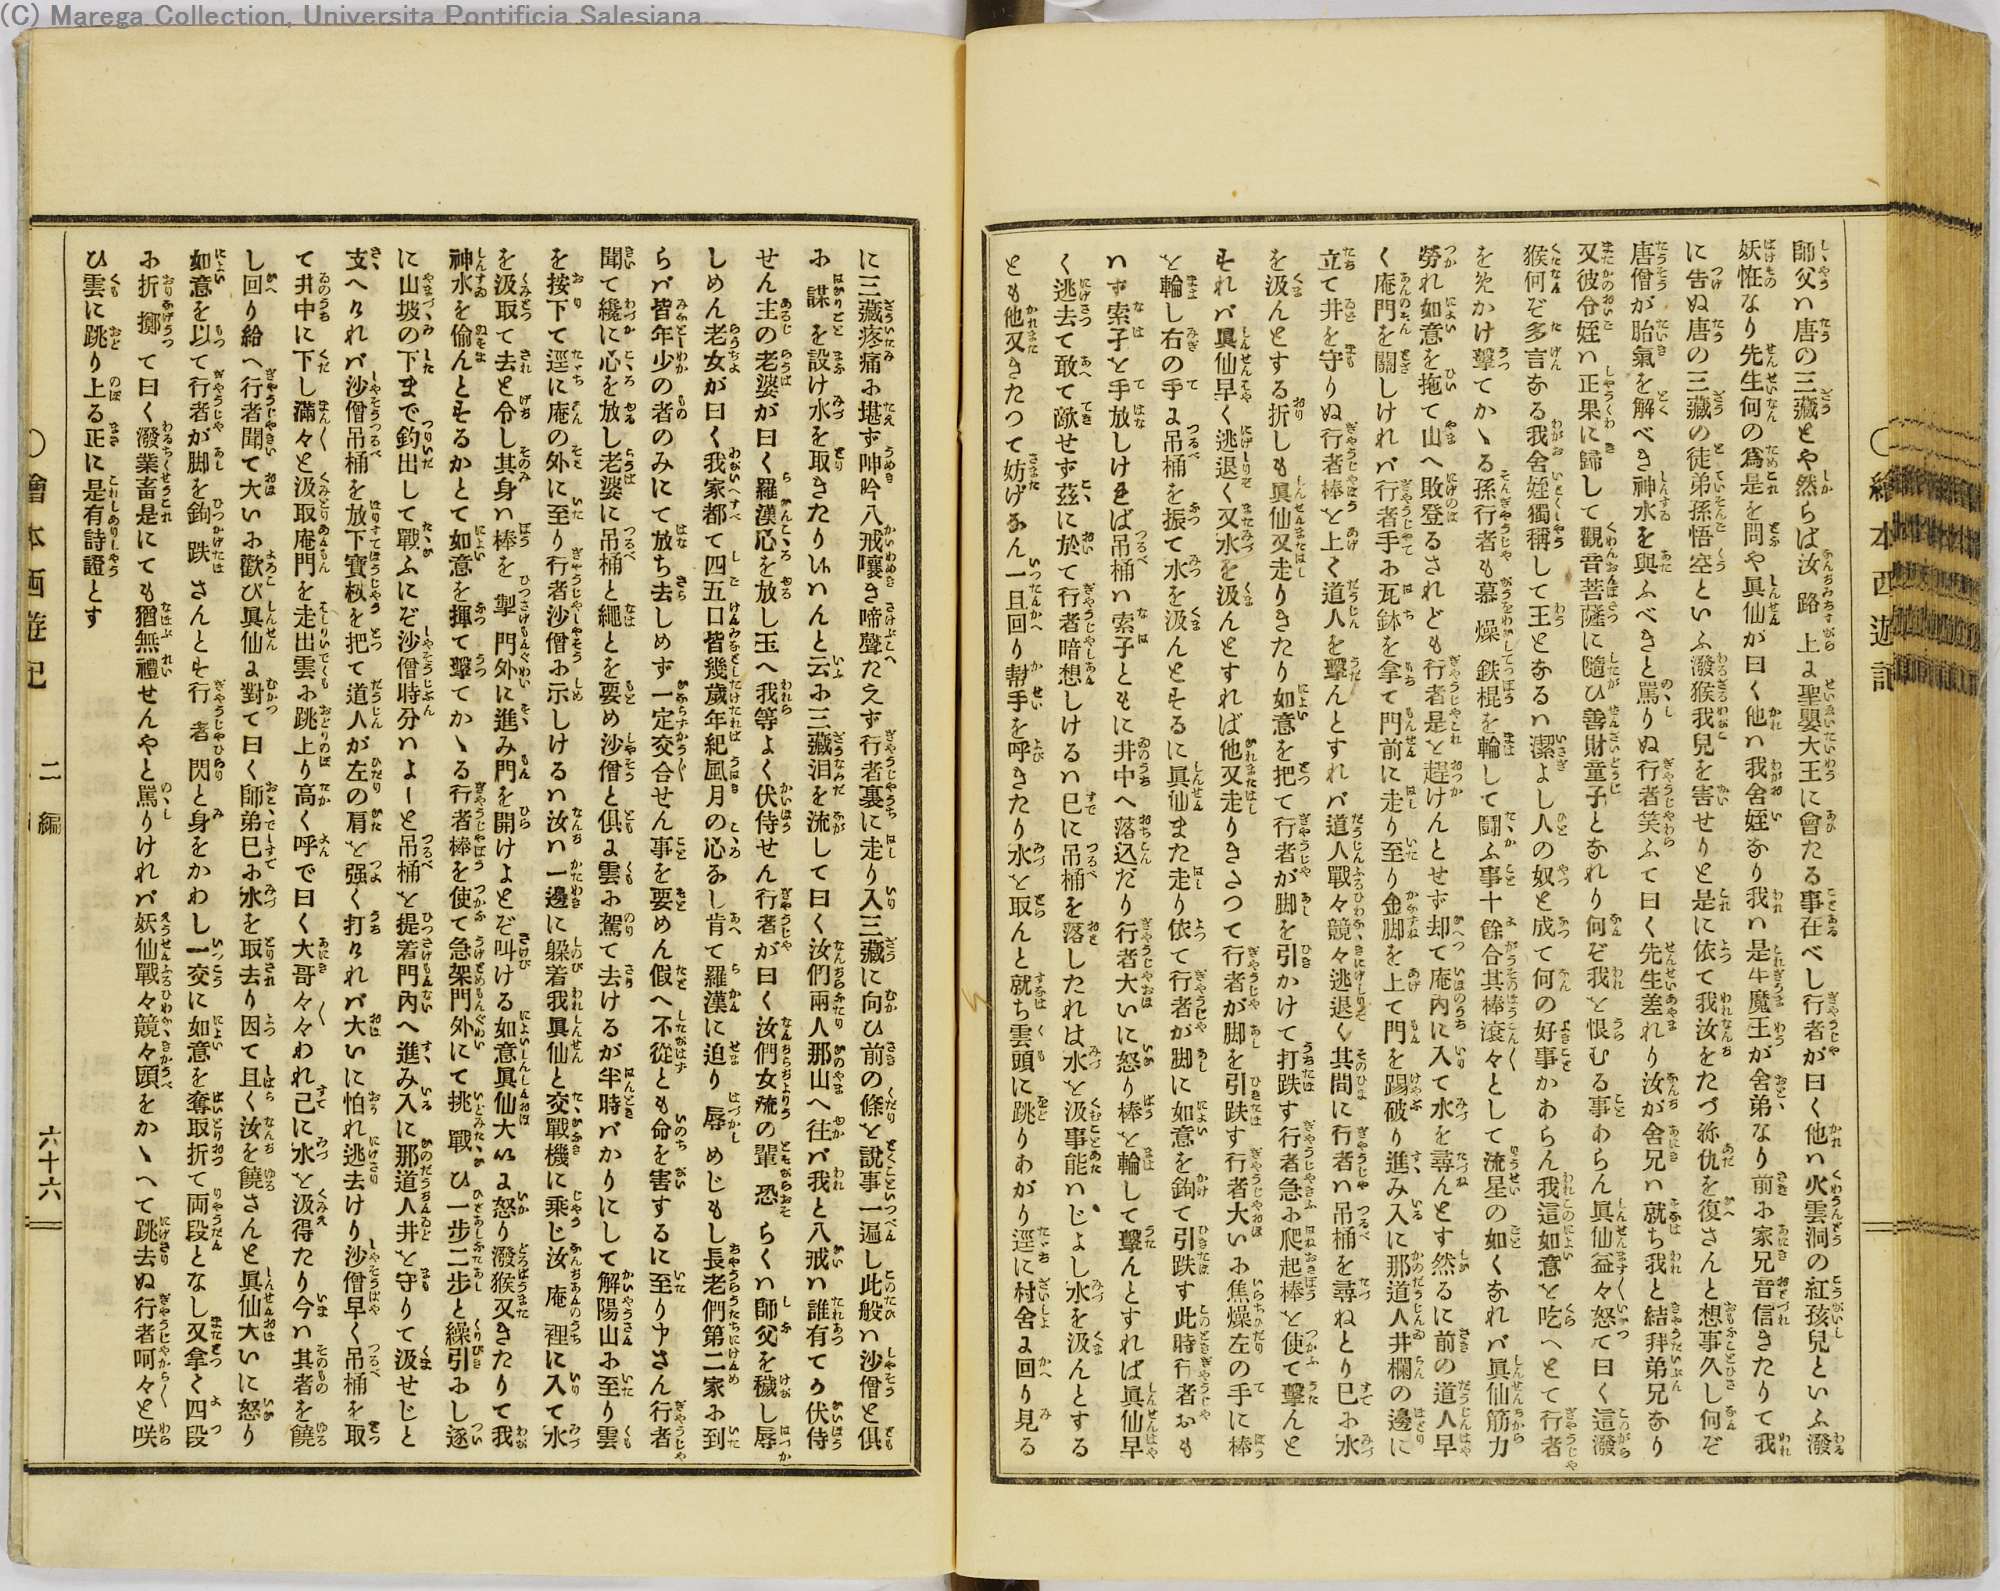 (C) Marega Collection, Universita Pontificia Salesiana
師父ハ唐の三藏とや然らば汝路上よ聖嬰大王に會たる事在べし行者が曰く他ハ火雲洞の紅孩兒といふ潑
妖怪なり先生何の爲是を問や眞仙が曰く他ハ我舍姪なり我ハ是牛魔王が舍弟なり前お家兄音信きたりて我
に告ぬ唐の三藏の徒弟孫悟空といふ潑猴我兒を害せりと是に依て我汝をたづね仇を復さんと想事久し何ぞ
唐僧が胎氣を解べき神水を與ふべきと罵りぬ行者笑ふて曰く先生差れり汝が舍兄ハ就ち我と結拜弟兄なり
又彼令姪ハ正果に歸して觀音菩薩に隨ひ善財童子となれり何ぞ我を恨むる事あらん眞仙益々怒て曰く這潑
猴何ぞ多言なる我舍姪獨稱して王となるハ潔よし人の奴と成て何の好事かあらん我這如意を吃へとて行者
を矢かけ擊てかゝる孫行者も慕燥鉄棍を輪して鬪ふ事十餘合其棒滾々として流星の如くなれバ眞仙筋力
勞れ如意を拖て山へ敗登るされども行者是を趕けんとせず却て庵內に入て水を尋んとす然るに前の道人早
く庵門を關しけれバ行者手お瓦鉢を拿て門前に走り至り金脚を上て門を踢破り進み入に那道人井欄の邊に
立て井を守りぬ行者棒を上く道人を擊んとすれバ道人戰々競々逃退く其間に行者ハ吊桶を尋ねとり已お水
を汲んとする折しも眞仙又走りきたり如意を把て行者が脚を引かけて打跌す行者急お爬起棒を使て擊んと
すれバ眞仙早く逃退く又水を汲んとすれば他又走りきさつて行者が脚を引跌す行者大いお焦燥左の手に棒
を輪し右の手よ吊桶を振て水を汲んとするに眞仙また走り依て行者が脚に如意を鉤て引跌す此時行者おも
ハず索子を手放しければ吊桶ハ索子ともに井中へ落込だり行者大いに怒り棒を輪して擊んとすれば眞仙早
く逃去て敢て敵せず玆に於て行者暗想しけるハ已に吊桶を落したれは水を汲事能ハじよし水を汲んとする
とも他又きたつて妨げなん一且回り幇手を呼きたり水を取んと就ち雲頭に跳りあがり逕に村舍よ回り見る
○繪本西遊記
に三藏疼痛お堪ず呻吟八戒嚷き啼聲たえず行者裏に走り入三藏に向ひ前の條を說事一遍し此般ハ沙僧と俱
お謀を設け水を取きたりいハんと云お三藏泪を流して曰く汝們兩人那山へ往バ我と八戒ハ誰有てか伏侍
せん主の老婆が曰く羅漢心を放し玉へ我等よく伏侍せん行者が曰く汝們女流の輩恐らくハ師父を穢し辱
しめん老女が曰く我家都て四五口皆幾歲年紀風月の心なし肯て羅漢に迫り辱めじもし長老們第二家お到
らバ皆年少の者のみにて放ち去しめず一定交合せん事を要めん假へ不從とも命を害するに至り申さん行者
聞て纔に心を放し老婆に吊桶と繩とを要め沙僧と俱よ雲お駕て去けるが半時バかりにして解陽山お至り雲
を按下て逕に庵の外に至り行者沙僧お示しけるハ汝ハ一邊に躱着我眞仙と交戰機に乘じ汝庵裡に入て水
を汲取て去と令し其身ハ棒を掣門外に進み門を開けよとぞ叫ける如意眞仙大いよ怒り潑猴又きたりて我
神水を偷んとするかとて如意を揮て擊てかゝる行者棒を使て急架門外にて挑戰ひ一步二步と繰引おし逐
に山坡の下まで釣出して戰ふにぞ沙僧時分ハよーと吊桶を提着門內へ進み入に那道人井を守りて汲せじと
支へけれバ沙僧吊桶を放下寶杖を把て道人が左の肩を强く打けれバ大いに怕れ逃去けり沙僧早く吊桶を取
て井中に下し滿々と汲取庵門を走出雲お跳上り高く呼で曰く大哥々々われ己に水を汲得たり今ハ其者を饒
し回り給へ行者聞て大いお歡び眞仙よ對て曰く師弟已お水を取去り因て且く汝を饒さんと眞仙大いに怒り
如意を以て行者が脚を鉤跌さんとす行者閃と身をかわし一交に如意を奪取折て両段となし又拿く四段
お折擲て曰く潑業畜是にても猶無禮せんやと罵りけれバ妖仙戰々競々頭をかゝへて跳去ぬ行者呵々と咲
ひ雲に跳り上る正に是有詩證とす
○繪本西遊記　二編　六十六